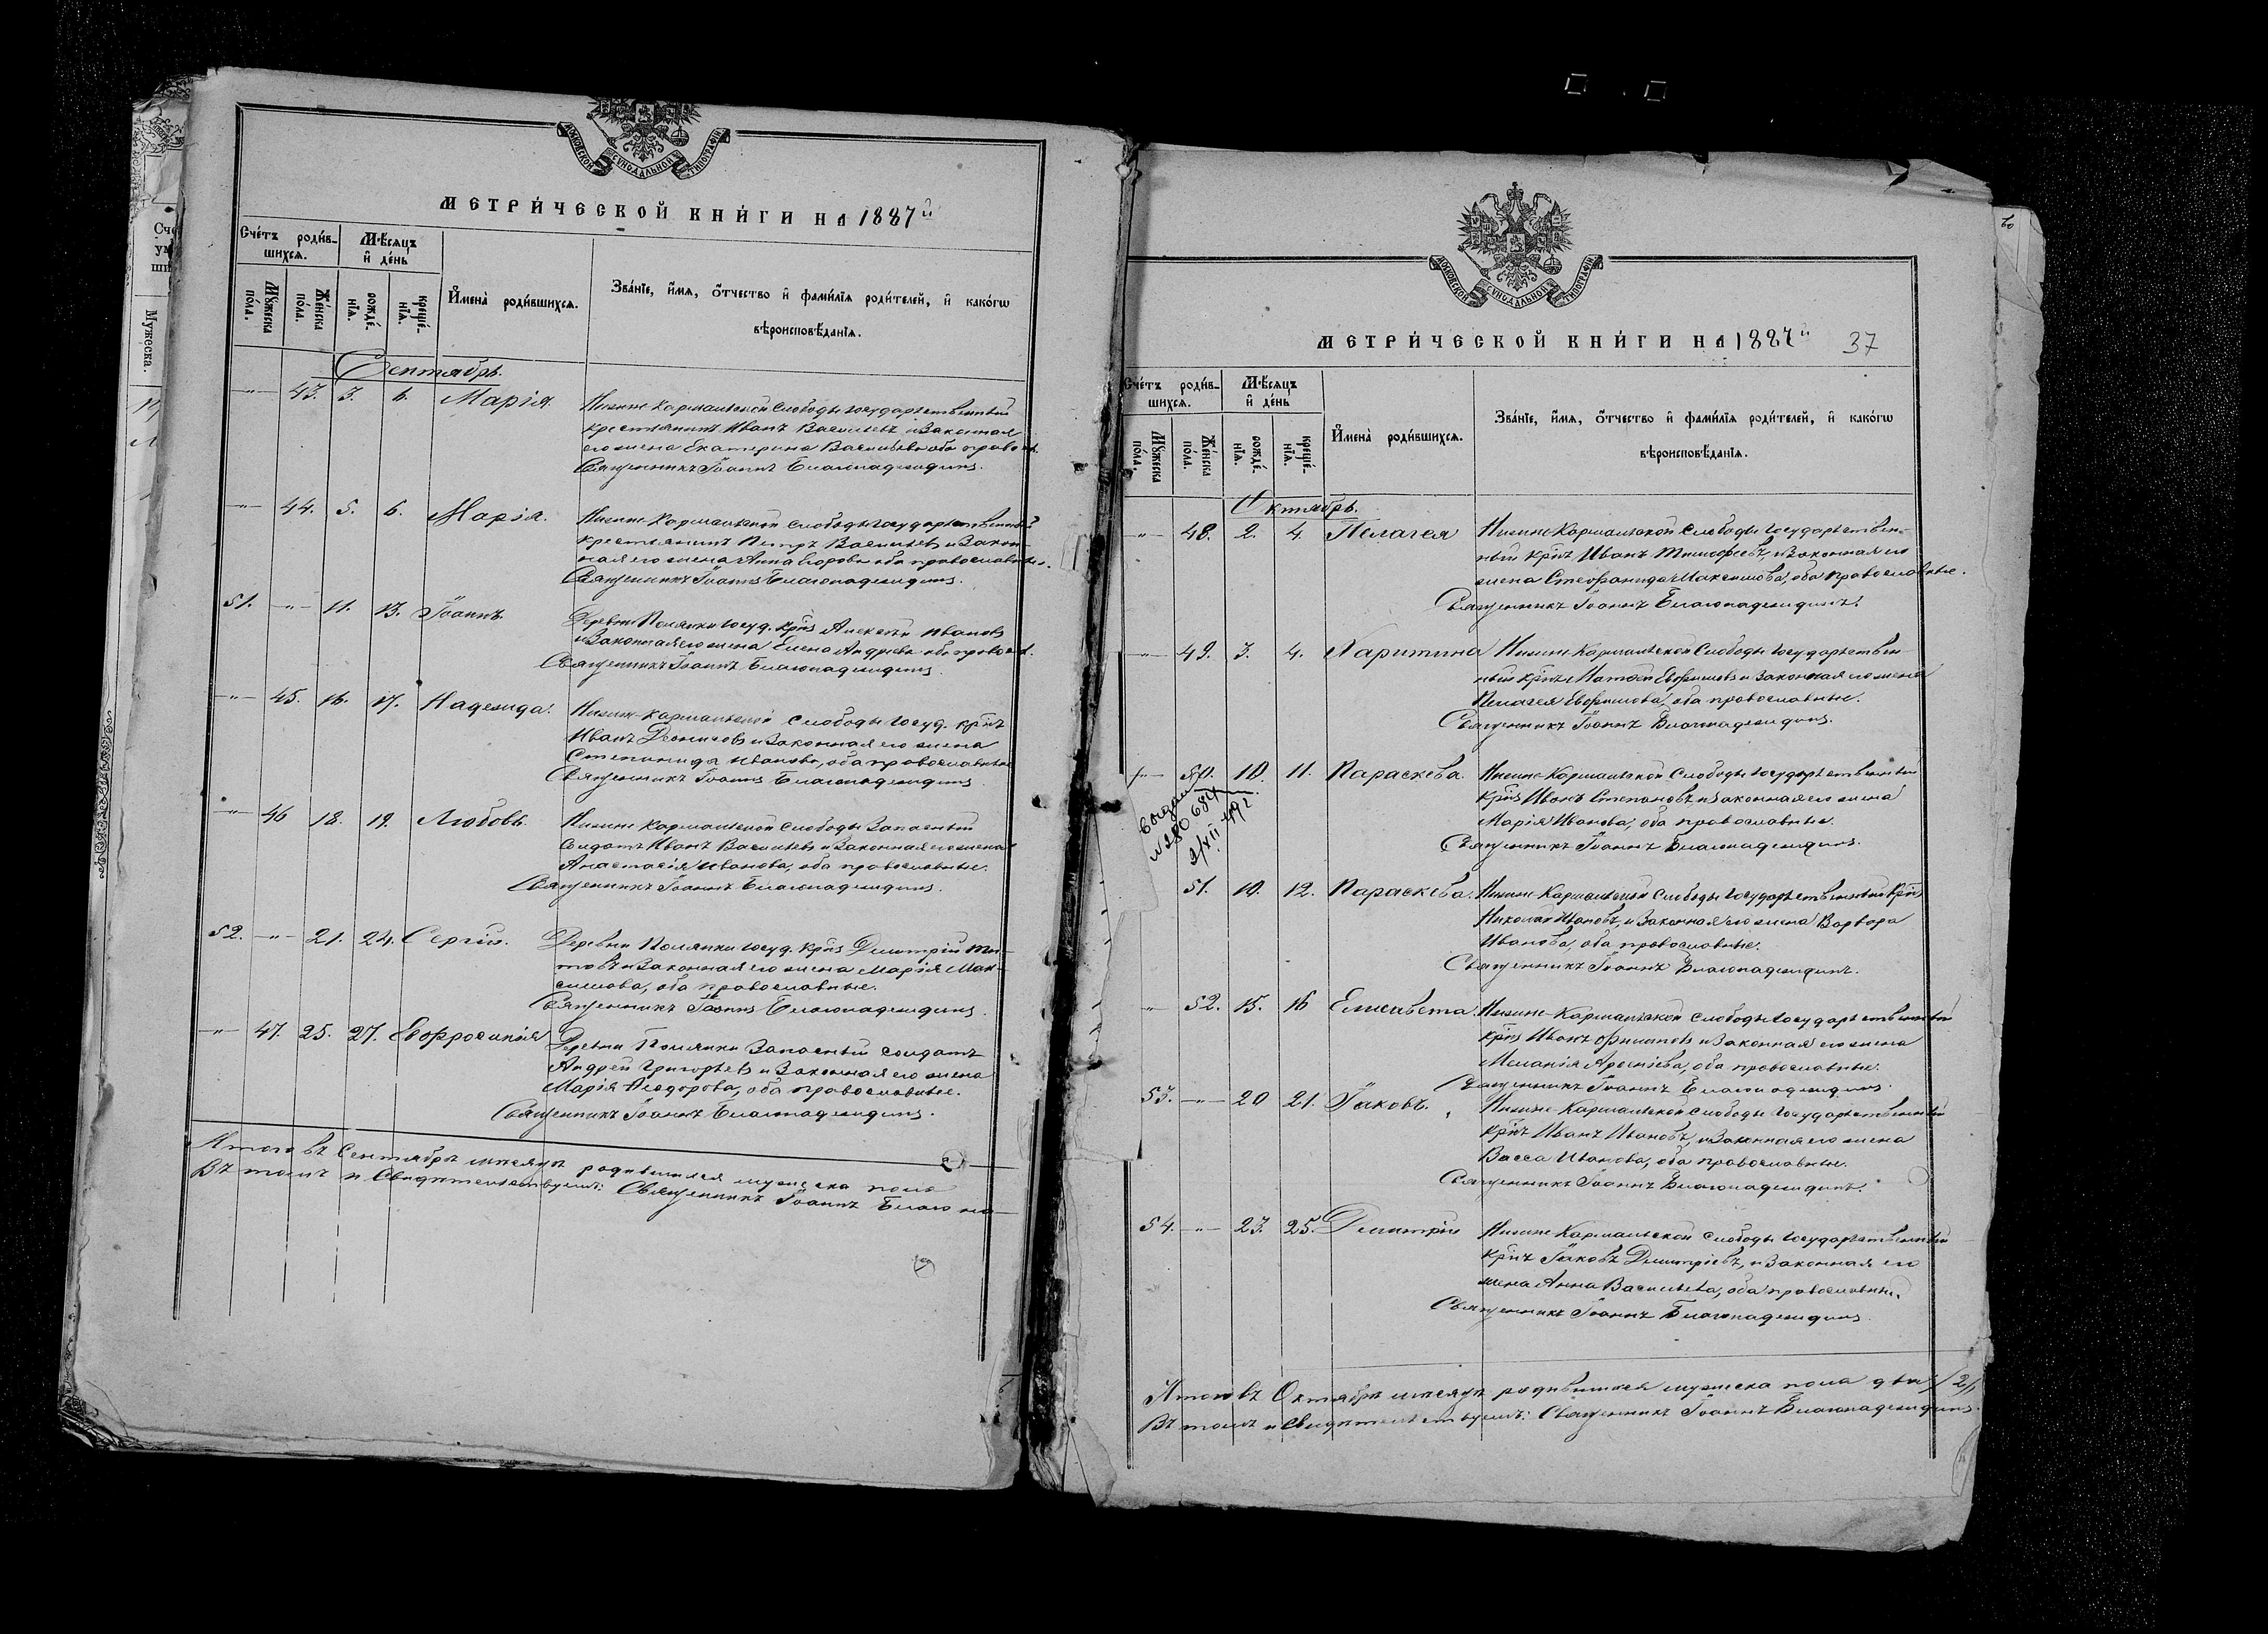 МОСКОВСКОЙ СУНОДАЛЬНОЙ ТИПОГРАФІИ
МЕТРИ́ЧЕСКОЙ КНИ́ГИ НА 1887й
Сче́тъ роди́в-
шихся.
Мѣ́сяцъ
и҆ де́нь
Мꙋ́жеска
по́ла.
Же́нска
по́ла.
рожде́-
нїѧ.
креще́-
нїѧ.
И҆мена̀ роди́вшихся.
Зва́нїе, и҆́мѧ, ѻ҆́тчество и҆ фами́лїѧ роди́телей, и҆ како́гѡ
вѣроисповѣ́данїѧ.
Сентябрь.
-"- 43. 3. 6. Марія. Нижне-Кармальской Слободы государственный
крестьянинъ Иванъ Васильевъ и законная
его жена Екатерина Васильева оба правосл.
Священникъ Іоаннъ Благонадеждинъ.
-"- 44. 5. 6. Марія. Нижне-Кармальской слободы государственный
крестьянинъ Петръ Васильевъ и закон-
ная его жена Анна Егорова оба православные.
Священникъ Іоаннъ Благонадеждинъ.
51. -"- 11. 13. Іоаннъ. Деревни Полянки госуд. крнъ Алексѣй Ивановъ
и Законная его жена Елена Андреева оба правосл.
Священникъ Іоаннъ Благонадеждинъ.
-"- 45. 16. 17. Надежда. Нижне-Кармальской слободы госуд. крнъ
Иванъ Деонисовъ и законная его жена
Степанида Иванова, оба православные
Священникъ Іоаннъ Благонадеждинъ
-"- 46 18. 19. Любовь. Нижне Кармальской слободы Запасный
солдатъ Иванъ Васильевъ и Законная его жена
Анастасія Иванова, оба православные.
Священникъ Іоаннъ Благонадеждинъ.
52. -"- 21. 24. Сергій. Деревни Полянки госуд. крнъ Димитрій Ти-
товъ и Законная его жена Марія Мак-
симова, оба православные.
Священникъ Іоаннъ Благонадеждинъ.
-"- 47. 25. 27. Евфросинія Деревни Полянки Запасный солдатъ
Андрей Григорьевъ и Законная его жена
Марія Ѳеодорова, оба православные.
Священникъ Іоаннъ Благонадеждинъ.
Итого въ Сентябрѣ мѣсяцѣ родившихся мужеска пола
Въ томъ и Свидѣтельствуемъ: Священникъ Іоаннъ Благона-
МОСКОВСКОЙ СУНОДАЛЬНОЙ ТИПОГРАФІИ
МЕТРИ́ЧЕСКОЙ КНИ́ГИ НА 1887й 37
Сче́тъ роди́в-
шихся.
Мѣ́сяцъ
и҆ де́нь
Мꙋ́жеска
по́ла.
Же́нска
по́ла.
рожде́-
нїѧ.
креще́-
нїѧ.
И҆мена̀ роди́вшихся.
Зва́нїе, и҆́мѧ, ѻ҆́тчество и҆ фами́лїѧ роди́телей, и҆ како́гѡ
вѣроисповѣ́данїѧ.
Октябрь.
-"- 48. 2. 4. Пелагея Нижне-Кармальской слободы государствен-
ный крнъ Иванъ Тимофеевъ, и Законная его
жена Стефанида Максимова, оба православные.
Священникъ Іоаннъ Благонадеждинъ.
-"- 49. 3. 4. Харитина Нижне-Кармальской Слободы государствен-
ный крнъ Матѳей Евфимовъ и законная его жена
Пелагея Евфимова, оба православные.
Священникъ Іоаннъ Благонадеждинъ.
-"- 50. 10. 11. Параскева. Нижне-Кармальской Слободы государственный
крнъ Иванъ Степановъ и законная его жена
Марія Иванова, оба православные.
Священникъ Іоаннъ Благонадеждинъ.
51. 10. 12. Параскева. Нижне-Кармальской слободы государственный крнъ
Николай Ивановъ, и Законная его жена Варвара
Иванова, оба православные.
Священникъ Іоаннъ Благонадеждинъ.
-"- 52. 15. 16 Елисавета. Нижне-Кармальской слободы государственный
крнъ Иванъ Филиповъ и Законная его жена
Меланія Арсеніева, оба православные.
Священникъ Іоаннъ Благонадеждинъ.
53. -"- 20 21. Іаковъ. Нижне-Кармальской слободы государственный
крнъ Иванъ Ивановъ, и Законная его жена
Васса Иванова, оба православные.
Священникъ Іоаннъ Благонадеждинъ.
54. -"- 23. 25. Димитрій Нижне Кармальской слободы государственный
крнъ Іаковъ Димитріевъ, и Законная его
жена Анна Васильева, оба православные
Священникъ Іоаннъ Благонадеждинъ
Итого въ Октябрѣ мѣсяцѣ родившихся мужеска пола два /2/
Въ томъ и Свидѣтельствуемъ: Священникъ Іоаннъ Благонадеждинъ.